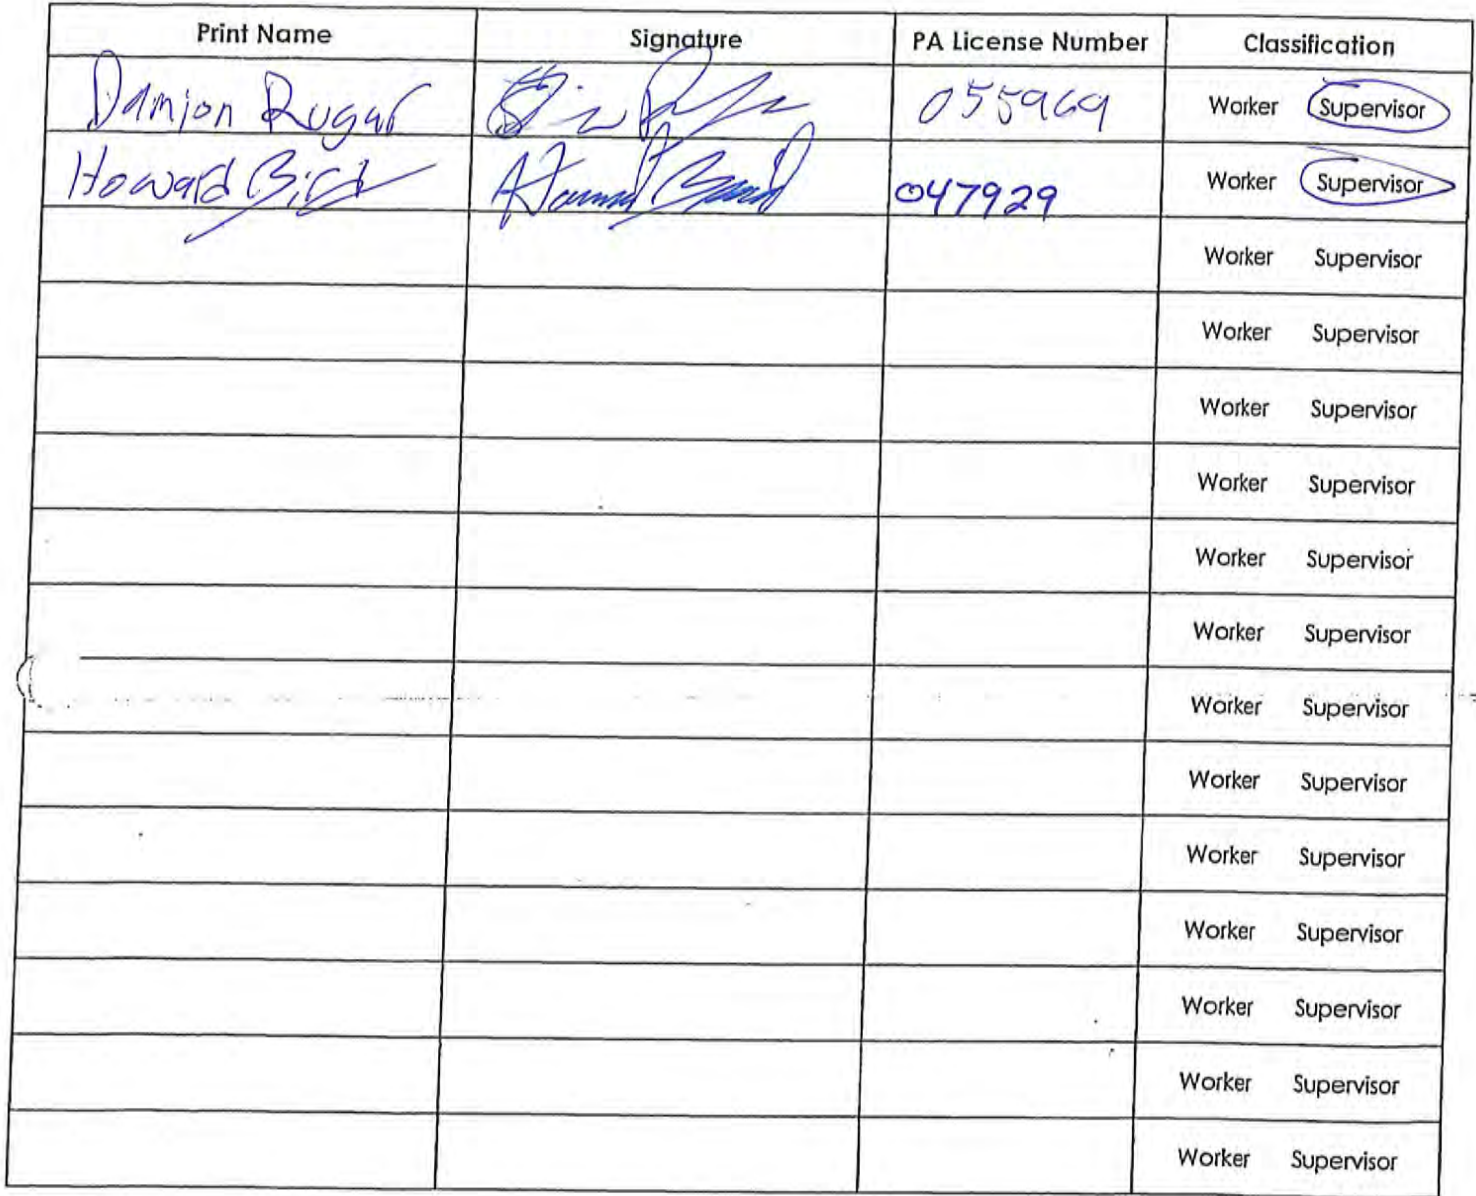 Print Name Signature PA License Number Classification
Damion Rugar 055969 Worker Supervisor
Howard Bird Howard Bird 047929 Worker Supervisor
Worker Supervisor
Worker Supervisor
Worker Supervisor
Worker Supervisor
Worker Supervisor
Worker Supervisor
Worker Supervisor
Worker Supervisor
Worker Supervisor
Worker Supervisor
Worker Supervisor
Worker Supervisor
Worker Supervisor